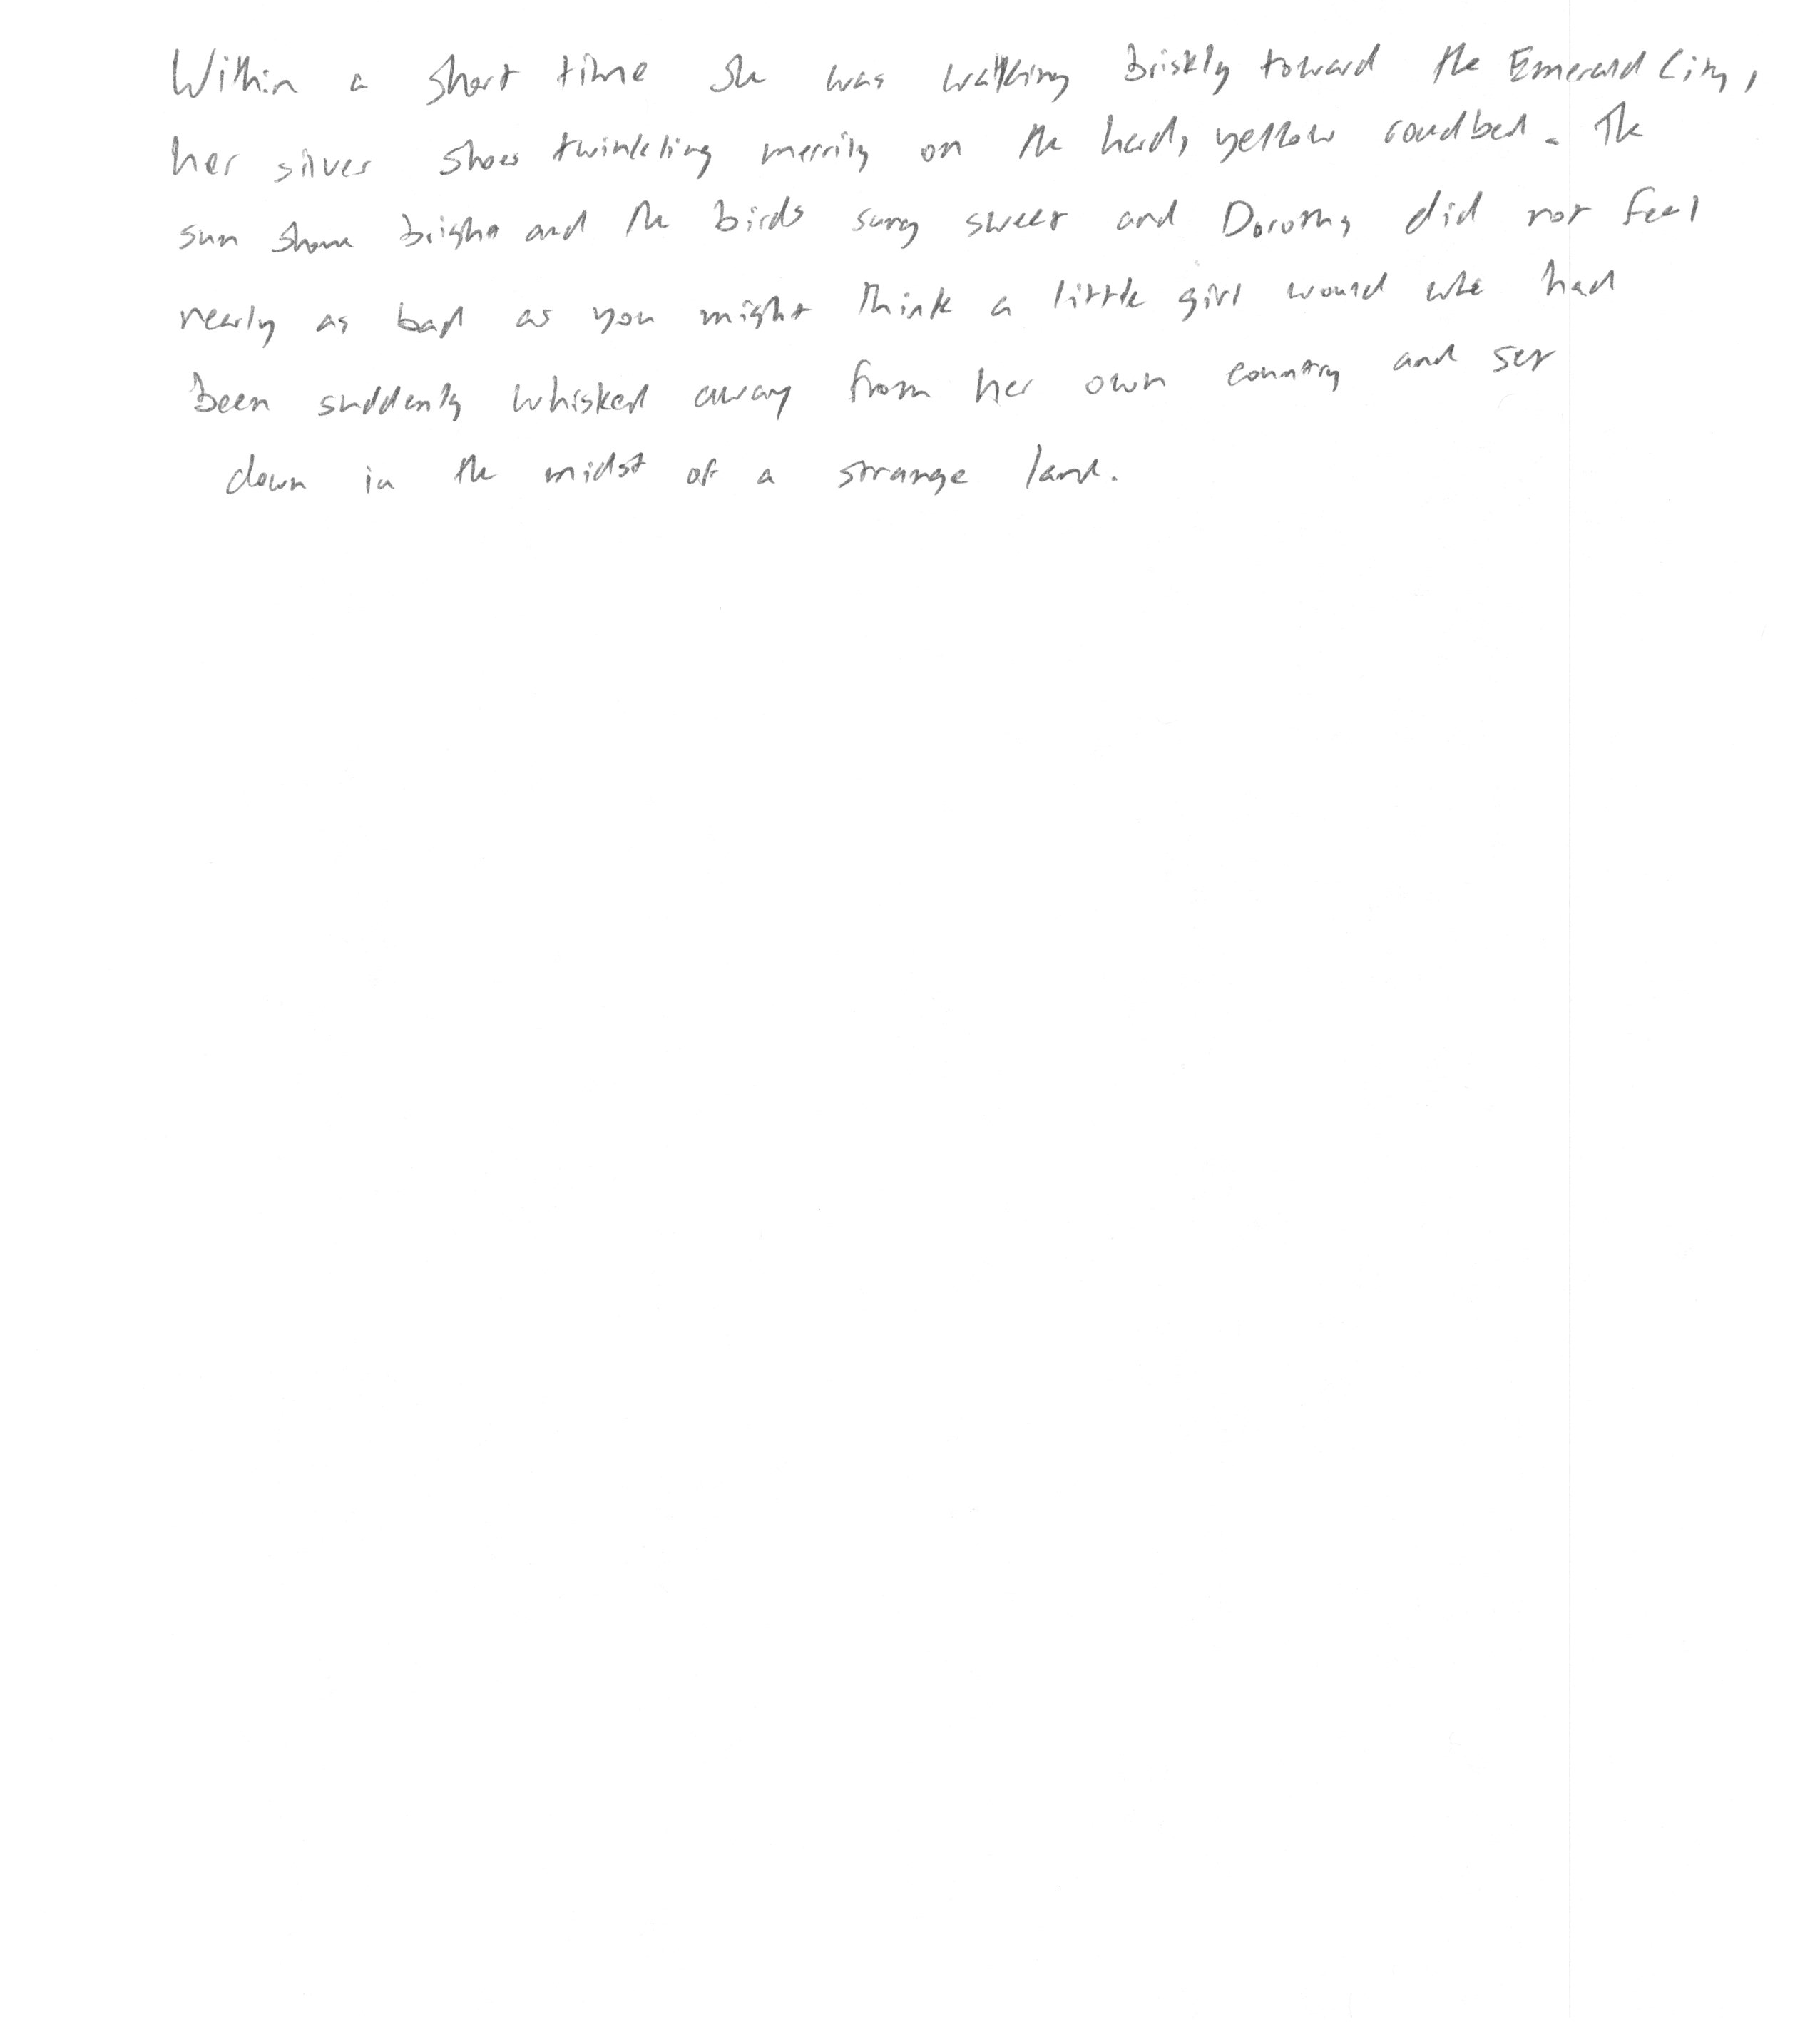 Within a short time she was walking briskly toward the Emerald City,
her silver shoes twinkling merrily on the hard, yellow roadbed. The
sun shone bright and the birds sang sweet and Dorothy did not feel
nearly as bad as you might think a little girl would who had
been suddenly whisked away from her own country and set
down in the midst of a strange land.